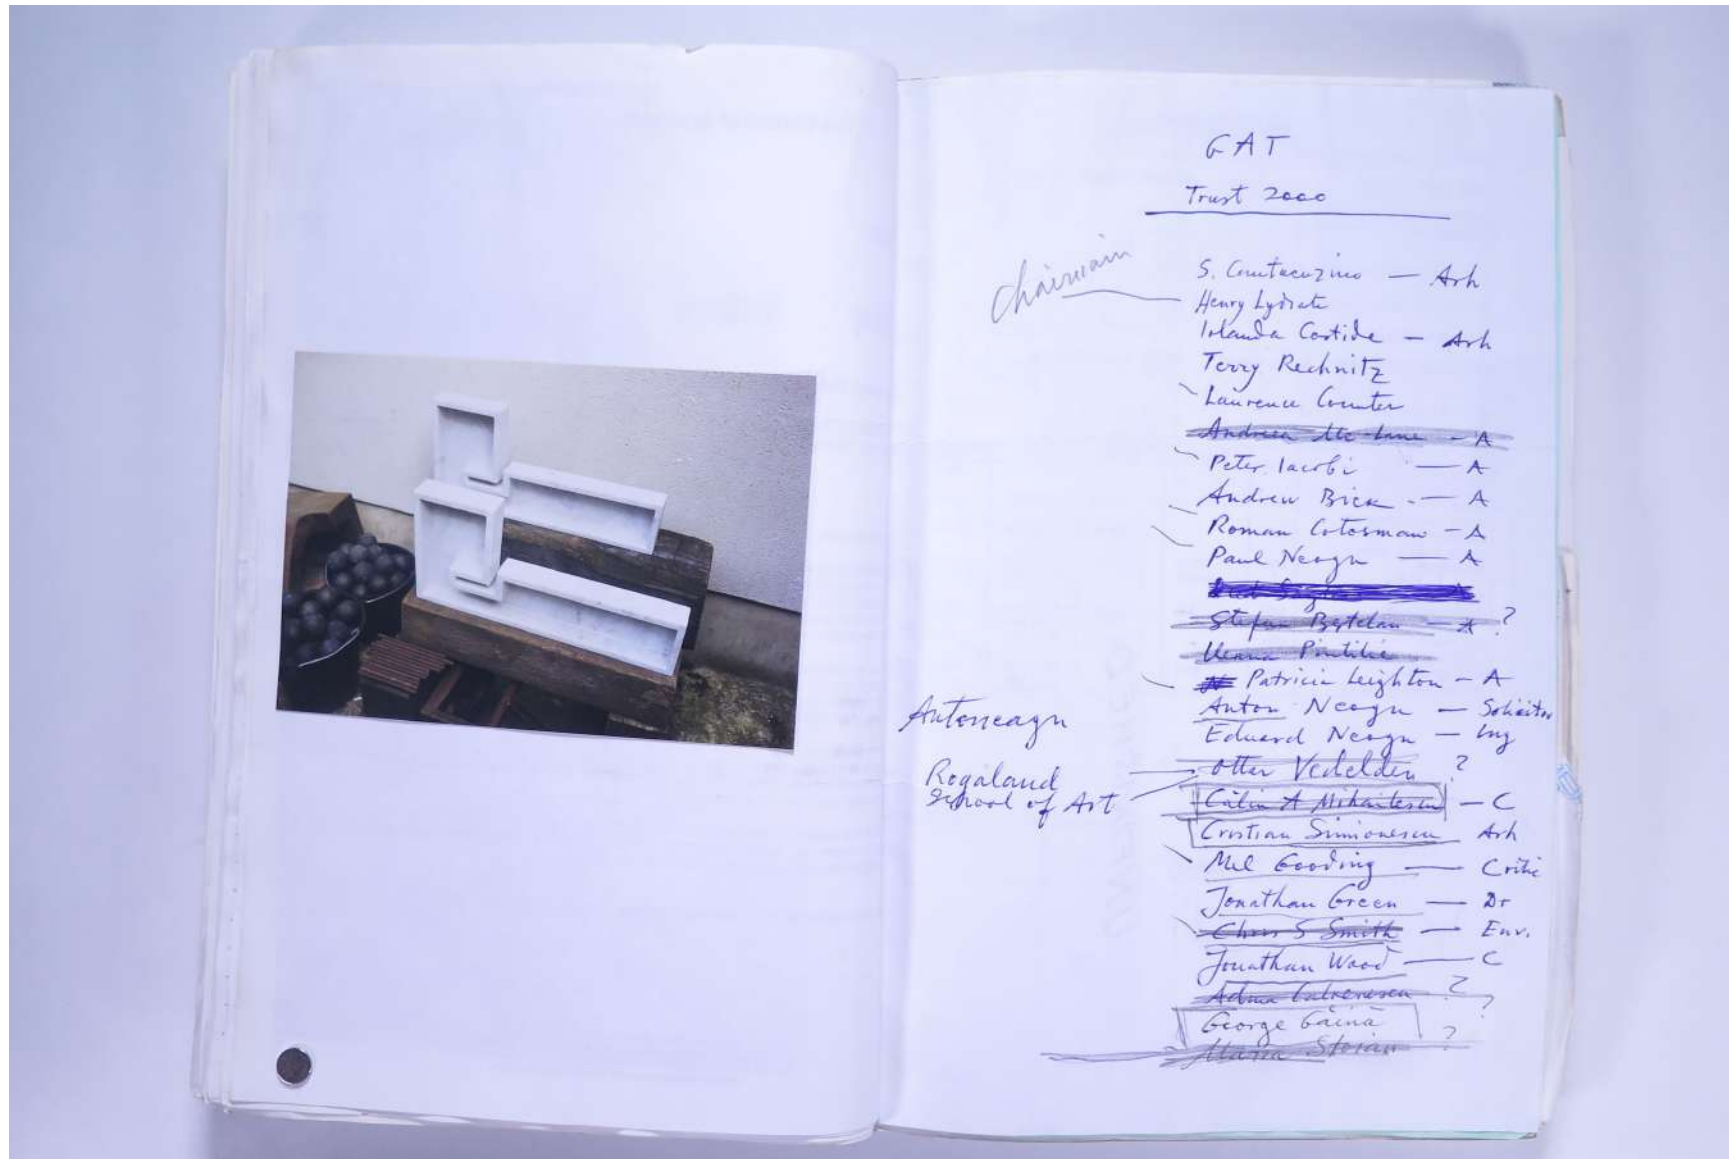 GAT
Trust 2000
Chairmain
S. Cantacuzino — Arh
Henry Lydiate
Iolanda Costide — Arh
Terry Rechnitz
Laurence Counter
Andreea Mc-Lane — A
Peter Iacobi — A
Andrew Bick — A
Roman Cotosman — A
Paul Neagu — A
Stefan Bertalan — A ?
Ileana Pintilie
Patricia Leighton — A
Anton Neagu — Solicitor
Antoneagu
Eduard Neagu — Ing
Ottar Vedelden ?
Rogaland
School of Art
Călin A Mihailescu — C
Cristian Simionescu Arh
Mel Gooding — Critic
Jonathan Green — Dr
Chris S Smith — Env.
Jonathan Wood — C
?
George Găină ?
Maria Stoian ?